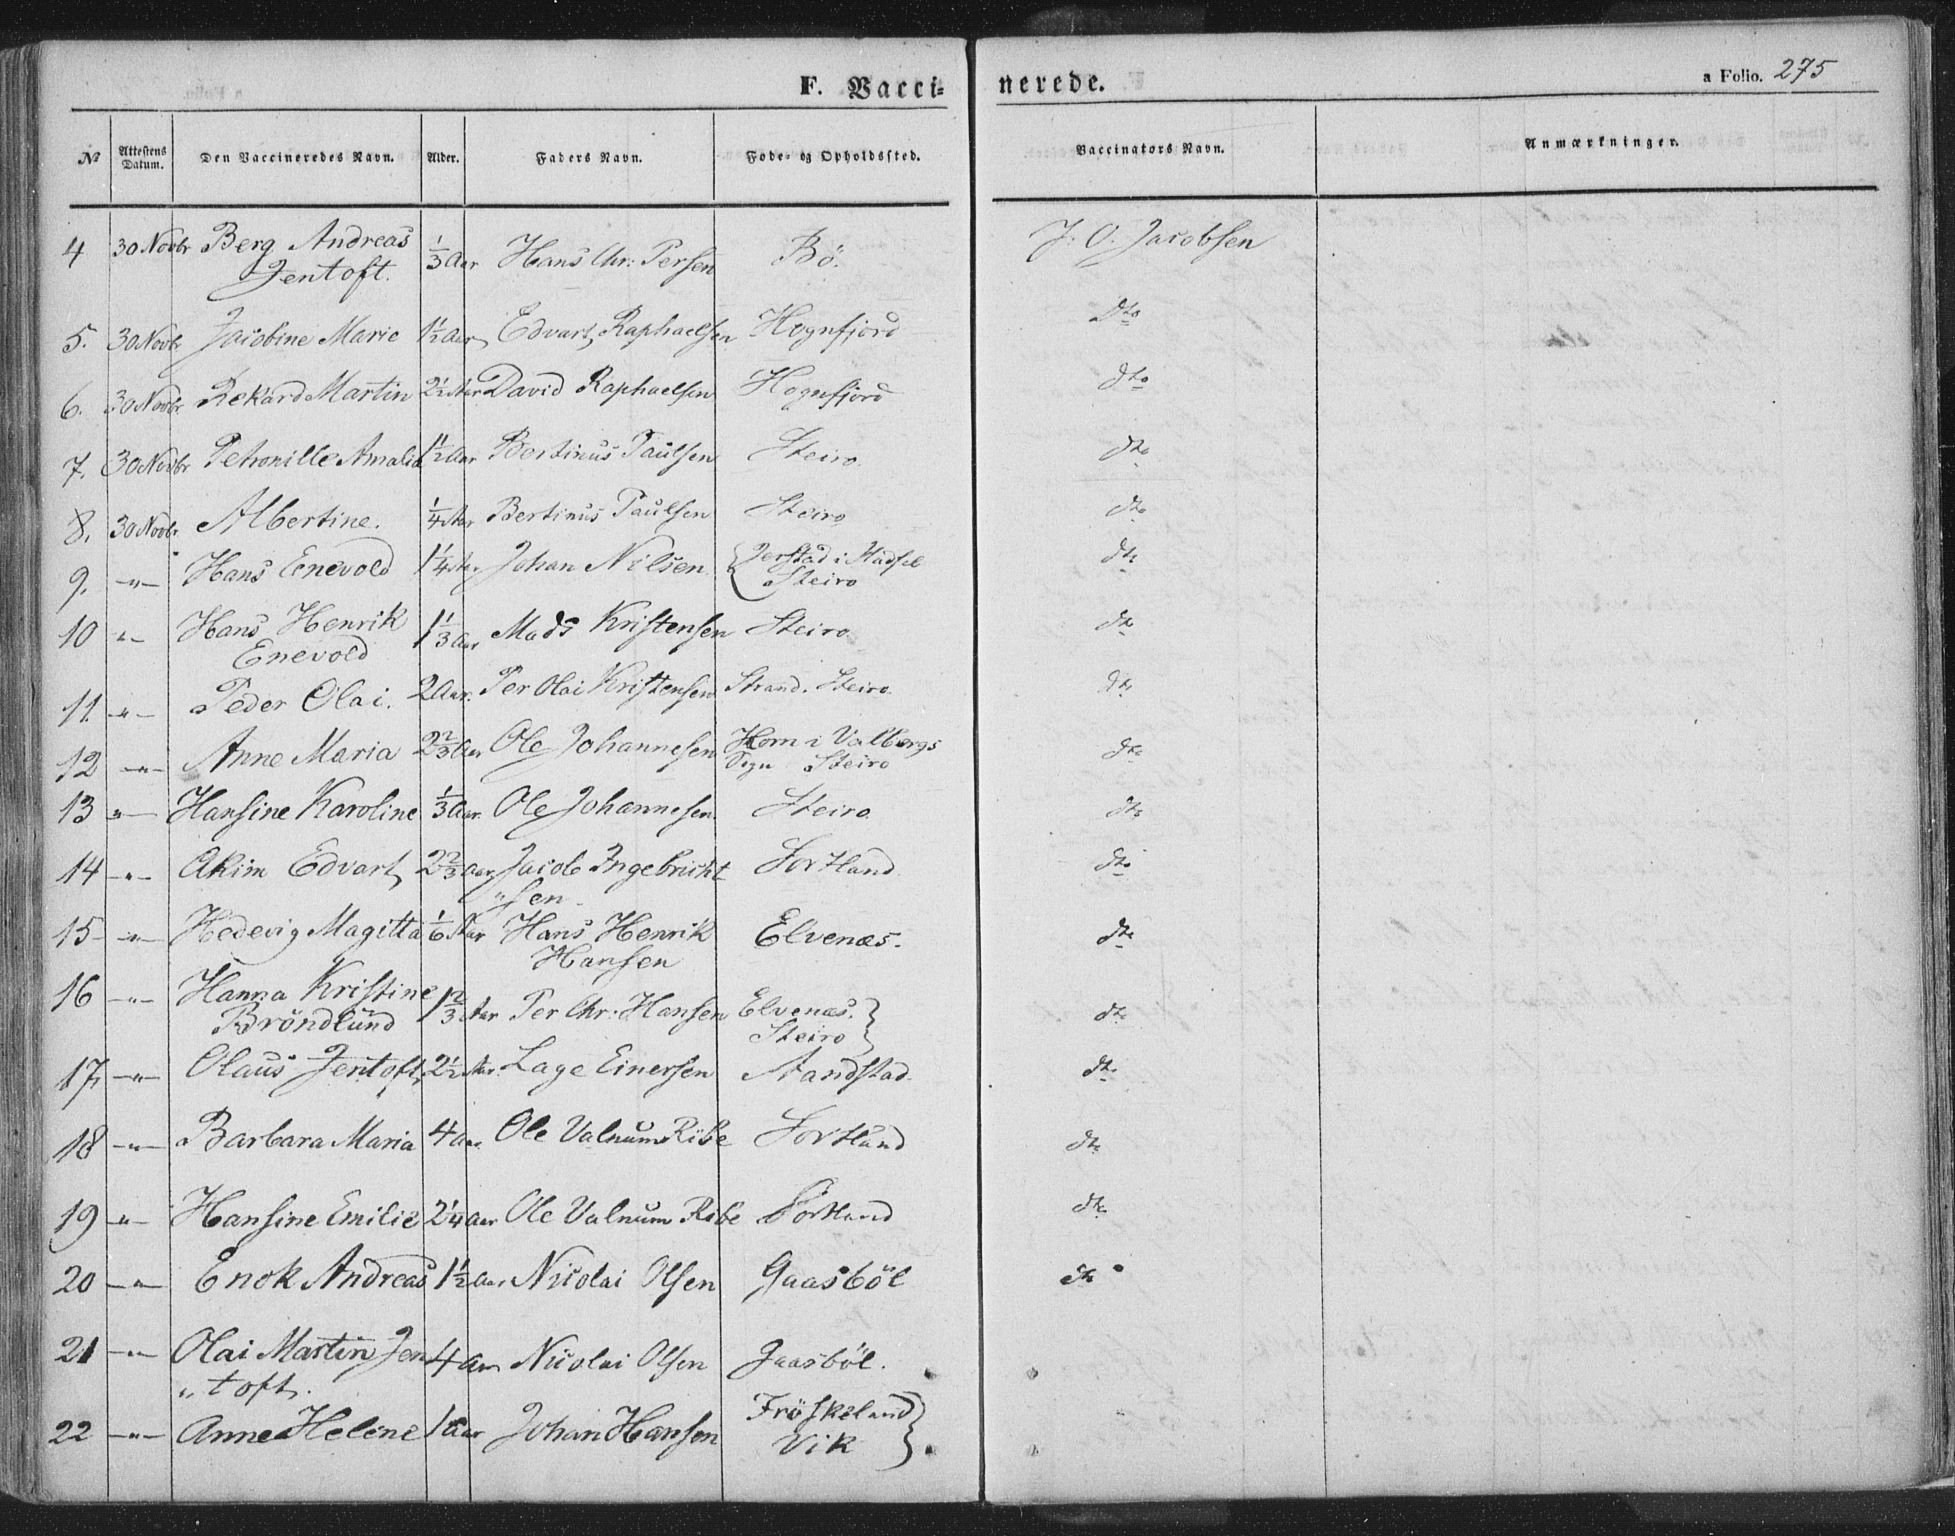 F. Vacci-
nerede.
a Folio. 275
No Attestens Datum. Den Vaccineredes Navn. Alder. Faders Navn. Føde- og Opholdssted. Vaccinators Navn. Anmærkninger.
4 30 Novbr Berg Andreas 1/3 Aar Hans Chr: Persen Bö. J. O. Jacobsen
Jentoft.
5. 30 Novbr Jacobine Marie 1 1/2 Aar Edvart Raphaelsen Hognfjord Dto
6. 30 Novbr Rekard Martin 2 1/2 Aar David Raphaelsen Hognfjord dto
7. 30 Novbr Petronille Amalia 1 1/2 Aar Bertinus Paulsen Steiro dto
8. 30 Novbr. Albertine. 1/4 Aar Bertinus Paulsen Steiro dto
9. -"- Hans Enevold 1 1/4 Aar Johan Nilsen { Jerstad i Hadsel dto
Steiro
10 -"- Hans Henrik 1 1/3 Aar Mads Kristensen Steiro dto
Enevold
11. -"- Peder Olai. 2 Aar. Per Olai Kristensen Strand. Steiro. dto
12 -"- Anne Maria 2 2/3 Aar Ole Johannesen Horn i Valbergs dto
Sogn Steiro
13 -"- Hansine Karoline 1/3 Aar. Ole Johannesen Steiro dto
14 -"- Akim Edvart 2 2/3 Aar Jacob Ingebricht Sortland dto
"sen.
15 -"- Hedevig Magitta 1/6 Aar Hans Henrik Elvenæs. dto
Hansen
16 -"- Hanna Kristine 1 2/3 Aar Per Chr. Hansen Elvenæs. } dto
Bröndlund Steiro
17 -"- Olaus Jentoft 2 1/2 Aar. Lage Einersen Sandstad. dto
18 -"- Barbara Maria 4 Aar Ole Valnum Ribe Sortland dto
19 -"- Hansine Emilie 2 1/4 Aar Ole Valnum Ribe Sortland dto
20 -"- Enok Andreas 1 1/2 Aar Nicolai Olsen Gaasböl dto
21 -"- Olai Martin Jen 4 Aar Nicolai Olsen Gaasböl.
"toft.
22 -"- Anne Helene 1 Aar Johan Hansen Fröskeland }
Vik